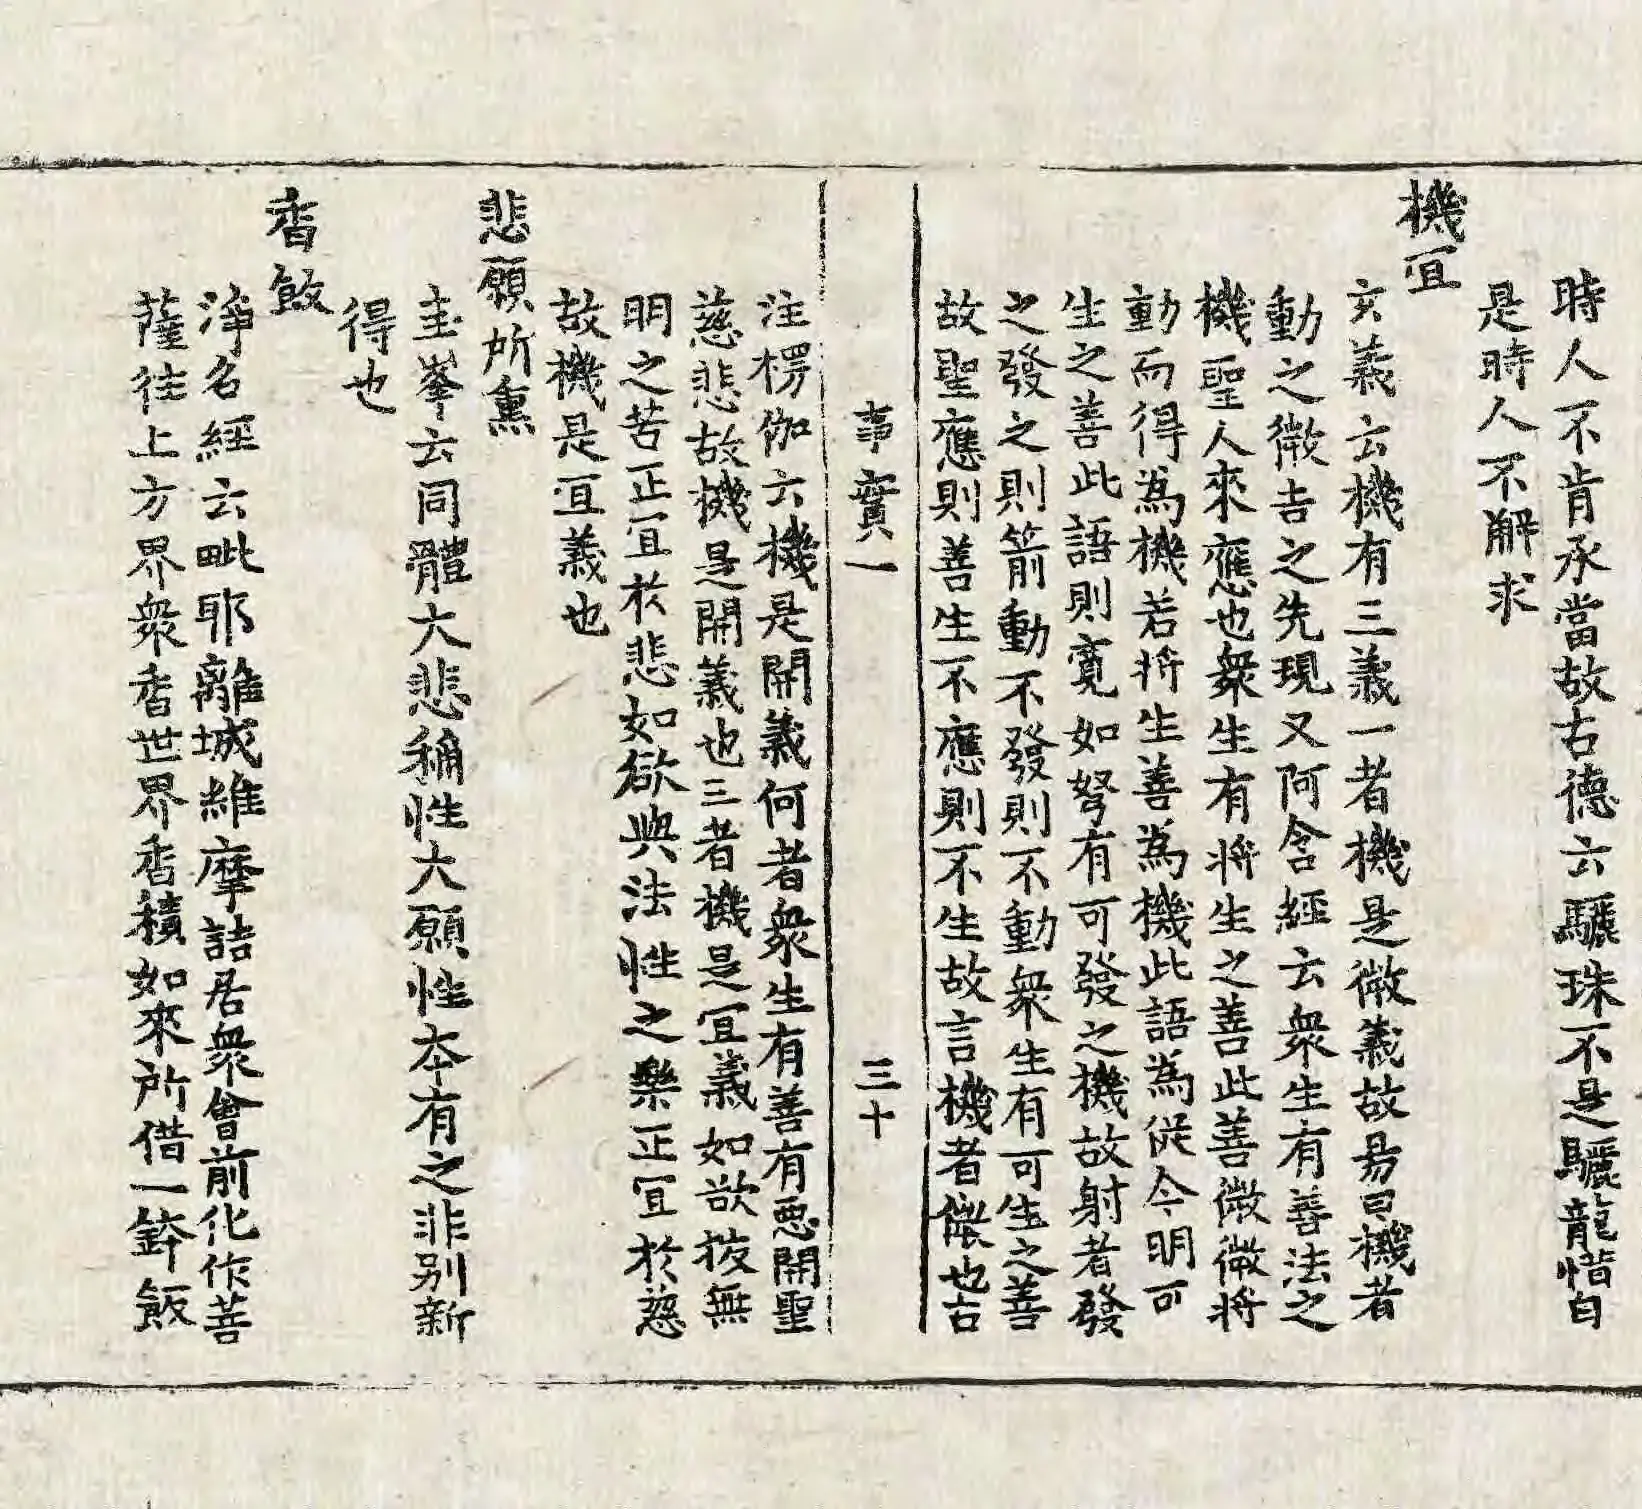 時人不肯承當故古德云驪珠不是驪龍惜自
是時人不解求
機宜
玄義云機有三義一者機是微義故易曰機者
動之微吉之先現又阿含經云衆生有善法之
機聖人來應也衆生有將生之善此善微微將
動而得為機若將生善為機此語為促今明可
生之善此語則寬如弩有可發之機故射者發
之發之則箭動不發則不動衆生有可生之善
故聖應則善生不應則不生故言機者微也古
事實一
三十
注楞伽云機是開義何者衆生有善有惡開聖
慈悲故機是開義也三者機是宜義如欲拔無
明之苦正宜於悲如欲與法性之樂正宜於慈
故機是宜義也
悲願所熏
圭峯云同體大悲稱性大願性本有之非別新
得也
香飯
淨名經云毗耶離城維摩詰居衆會前化作菩
薩往上方界衆香世界香積如來所借一鉢飯